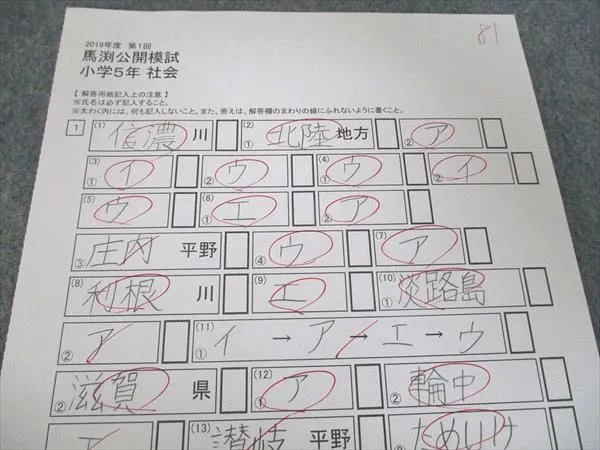 81
2019年度 第1回
馬渕公開模試
小学5年 社会
【 解答用紙記入上の注意 】
※氏名は必ず記入すること。
※太わく内には、何も記入しないこと。また、答えは、解答欄のまわりの線にふれないように書くこと。
1 (1) 信濃 川 (2) ① 北陸 地方 ② ア
(3) ① イ ② ウ (4) ① ウ ② イ
(5) ① ウ (6) ① エ ② ア
③ 庄内 平野 ④ ウ (7) ア
(8) 利根 川 (9) エ (10) ① 淡路島
② ア (11) ① イ → ア → エ → ウ
② 滋賀 県 (12) ① ア ② 輪中
(13) 讃岐 平野 ためいけ